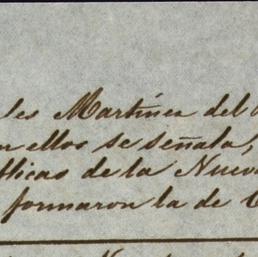 les Martínez del
n ellos se señala,
blicas de la Nueva
formaron la de